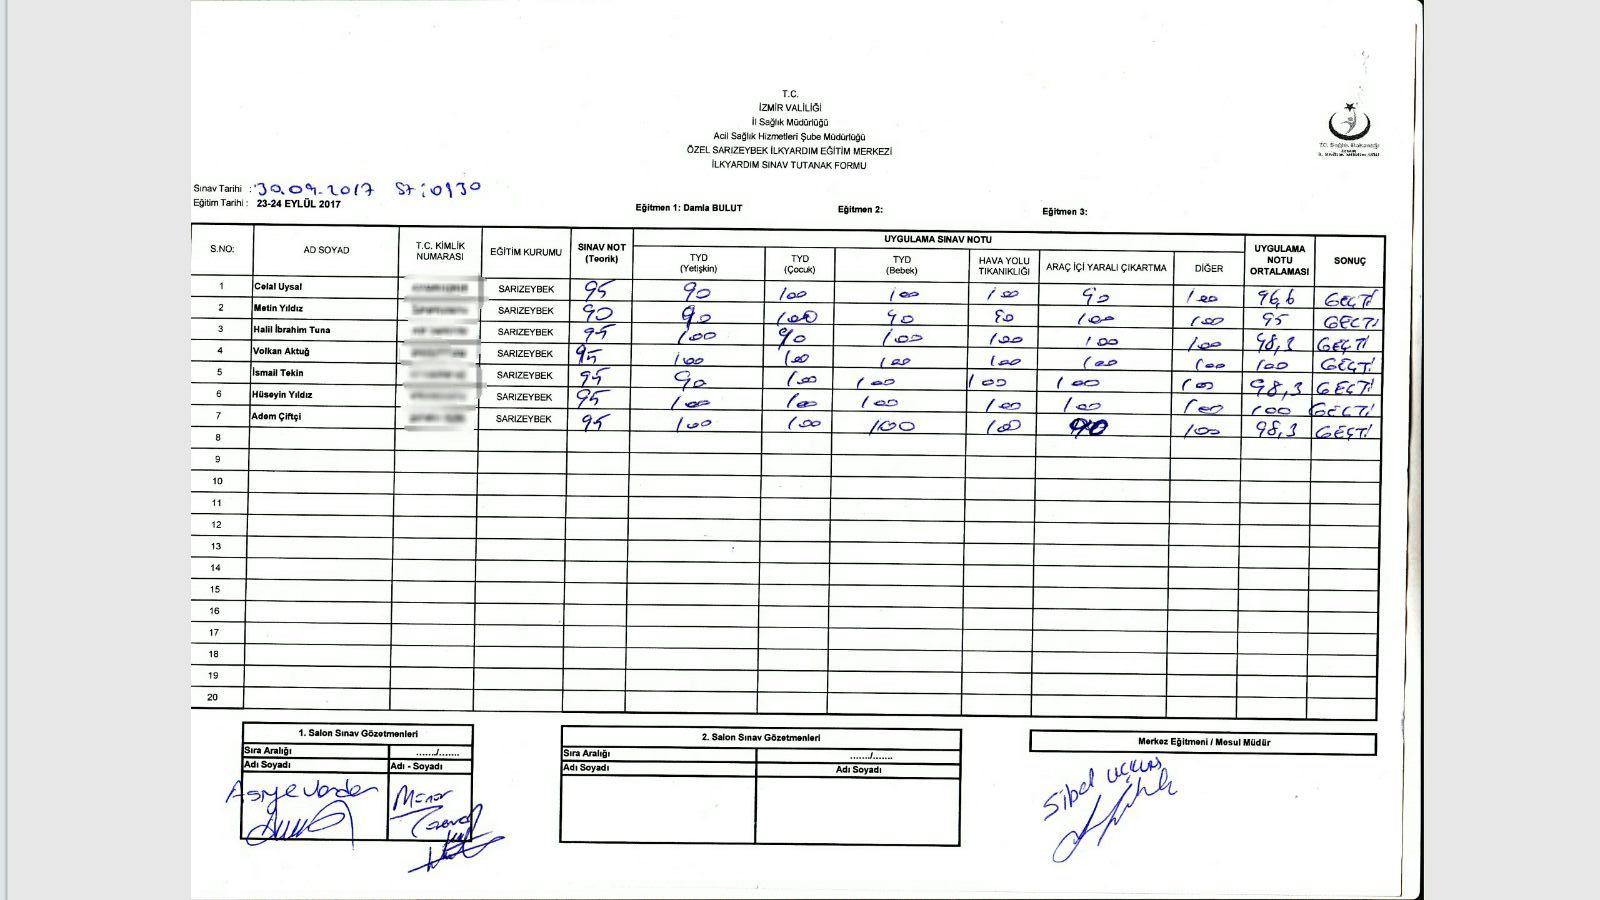 T.C.
İZMİR VALİLİĞİ
İl Sağlık Müdürlüğü
Acil Sağlık Hizmetleri Şube Müdürlüğü
ÖZEL SARIZEYBEK İLKYARDIM EĞİTİM MERKEZİ
İLKYARDIM SINAV TUTANAK FORMU
T.C. Sağlık Bakanlığı
Sınav Tarihi : 30.09.2017 St: 0930
Eğitim Tarihi : 23-24 EYLÜL 2017
Eğitmen 1: Damla BULUT Eğitmen 2: Eğitmen 3:
UYGULAMA SINAV NOTU
S.NO: AD SOYAD T.C. KİMLİK NUMARASI EĞİTİM KURUMU SINAV NOT (Teorik) TYD (Yetişkin) TYD (Çocuk) TYD (Bebek) HAVA YOLU TIKANIKLIĞI ARAÇ İÇİ YARALI ÇIKARTMA DİĞER UYGULAMA NOTU ORTALAMASI SONUÇ
1 Celal Uysal SARIZEYBEK 95 90 100 100 100 90 100 96,6 GEÇTİ
2 Metin Yıldız SARIZEYBEK 90 90 100 90 90 100 100 95 GEÇTİ
3 Halil İbrahim Tuna SARIZEYBEK 95 100 90 100 100 100 100 98,3 GEÇTİ
4 Volkan Aktuğ SARIZEYBEK 95 100 100 100 100 100 100 100 GEÇTİ
5 İsmail Tekin SARIZEYBEK 95 90 100 100 100 100 100 98,3 GEÇTİ
6 Hüseyin Yıldız SARIZEYBEK 95 100 100 100 100 100 100 100 GEÇTİ
7 Adem Çiftçi SARIZEYBEK 95 100 100 100 100 90 100 98,3 GEÇTİ
8
9
10
11
12
13
14
15
16
17
18
19
20
1. Salon Sınav Gözetmenleri
Sıra Aralığı ....../.......
Adı Soyadı Adı - Soyadı
2. Salon Sınav Gözetmenleri
Sıra Aralığı ....../.......
Adı Soyadı Adı Soyadı
Merkez Eğitmeni / Mesul Müdür
Sibel